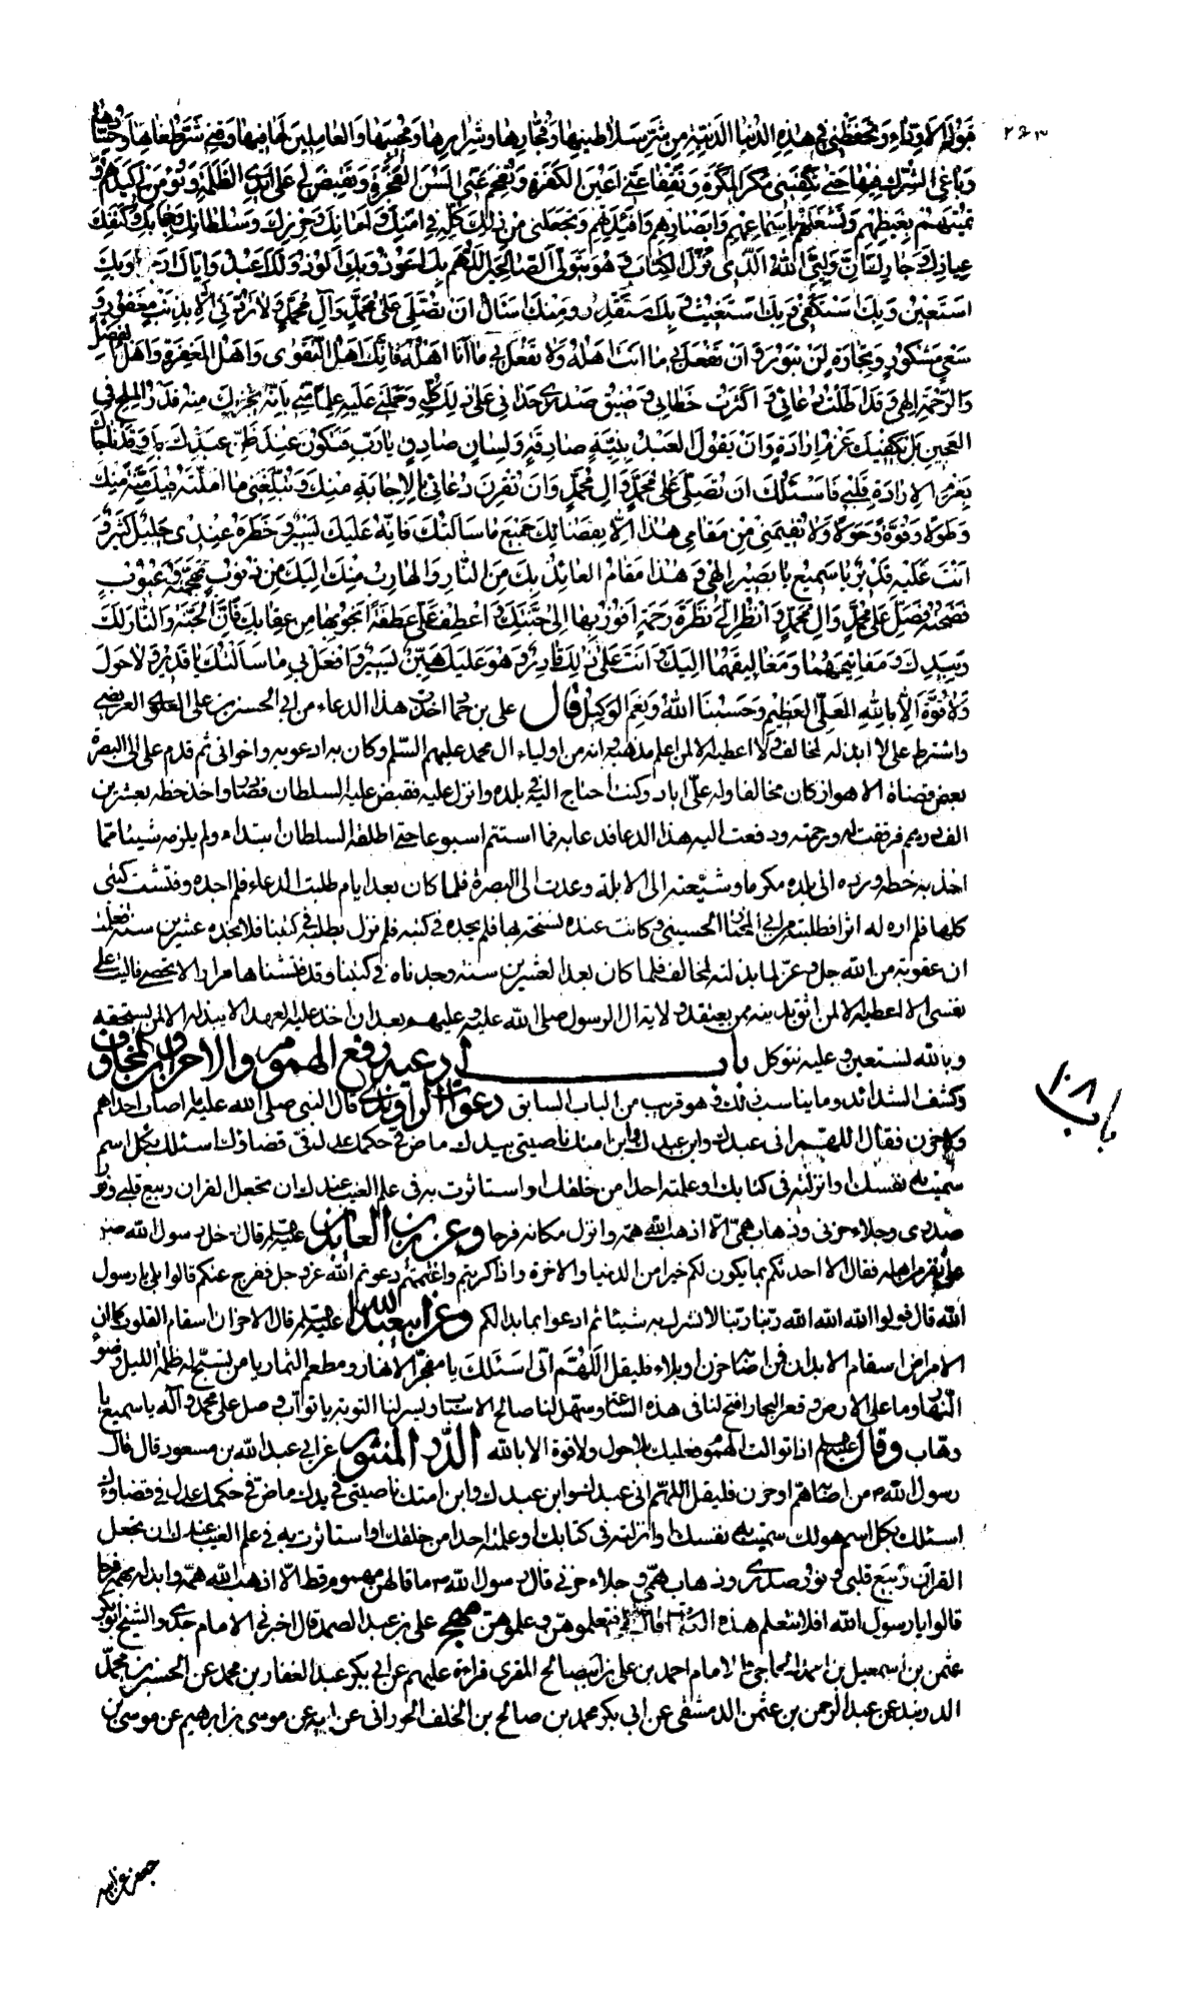 وتحفظني في هذه الدنيا الدنية من شر سلاطينها وفجارها وشرارها ومحبيها والعاملين لها فيها وقني شر طغاتها وحسادها
وباغي الشرك فيها حتى تكفيني مكر المكرة وتفقأ عني اعين الكفرة وتفحم عني السن الفجرة وتقبض لي على ايدي الظلمة وتؤمن لي كيدهم و
تميتهم بغيظهم وتشغلهم باسماعهم وابصارهم وافئدتهم وتجعلني من ذلك كله في امنك وامانك وحرزك وسلطانك وحجابك وكنفك
وعياذك وجارك ان وليي الله الذي نزل الكتاب وهو يتولى الصالحين اللهم بك اعوذ وبك الوذ ولك اعبد واياك ارجو وبك
استعين وبك استكفي وبك استغيث وبك استقدر ومنك اسأل ان تصلي على محمد وآل محمد ولا تردني الا بذنب مغفور و
سعي مشكور وتجارة لن تبور وان تفعل بي ما انت اهله ولا تفعل بي ما انا اهله فانك اهل التقوى واهل المغفرة واهل الفضل
والرحمة الهي وقد اطلت دعائي واكثرت خطابي وضيق صدري حداني على ذلك كله وحملني عليه علما مني بانه يجزيك منه قدر الملح في
العجين بل يكفيك عزم ارادة وان يقول العبد بنية صادقة ولسان صادق يا رب فتكون عند ظن عبدك بك وقد ناجاك
بعزم الارادة قلبي فاسئلك ان تصلي على محمد وآل محمد وان تقرن دعائي بالاجابة منك وتبلغني ما املته فيك منة منك
وطولا وقوة وحولا ولا تقيمني من مقامي هذا الا بقضائك جميع ما سألتك فانه عليك يسير وخطره عندي جليل كثير و
انت عليه قدير يا سميع يا بصير الهي وهذا مقام العائذ بك من النار والهارب منك اليك من ذنوب تهجمته وعيوب
فضحته فصل على محمد وآل محمد وانظر الي نظرة رحمة افوز بها الى جنتك واعطف علي عطفة انجو بها من عقابك فان الجنة والنار لك
وبيدك ومفاتيحهما ومغاليقهما اليك وانت على ذلك قادر وهو عليك هين يسير وافعل بي ما سألتك يا قدير ولا حول
ولا قوة الا بالله العلي العظيم وحسبنا الله ونعم الوكيل قال علي بن حماد اخذت هذا الدعاء من ابي الحسن علي العلوي العريضي
واشترط علي لا ابذله لمخالف ولا اعطيه الا لمن اعلم مذهبه وانه من اولياء آل محمد عليهم السلم وكان به ادعو به واخواني ثم قدم علي الى البصرة
بعض قضاة الاهواز كان مخالفا وله علي اياد وكنت احتاج اليه في بلده وانزل عليه فقبض عليه السلطان فصادره واخذ خطه بعشرين
الف درهم فرققت له ورحمته ودفعت اليه هذا الدعا فدعا به فما استتم اسبوعا حتى اطلقه السلطان ابتداء ولم يلزمه شيئا مما
اخذ به خطه ورده الى بلده مكرما وشيعته الى الابلة وعدت الى البصرة فلما كان بعد ايام طلبت الدعاء فلم اجده وفتشت كتبي
كلها فلم ار له اثرا فطلبته من ابي المختار الحسيني وكانت عنده نسخة بها فلم يجده في كتبه فلم نزل نطلبه في كتبنا فلا نجده عشرين سنة فعلمت
ان عقوبة من الله جل وعز لما بذلته لمخالف فلما كان بعد العشرين سنة وجدناه في كتبنا وقد فتشناها مرارا لا تحصى فآليت على
نفسي الا اعطيه الا لمن اثق بدينه ممن يعتقد ولاية آل الرسول صلى الله عليه وعليهم بعد ان اخذ عليه العهد الا يبذله الا لمن يستحقه
وبالله نستعين وعليه نتوكل باب ادعية رفع الهموم والاحزان والمخاوف
وكشف الشدائد وما يناسب ذلك وهو قريب من الباب السابق دعوات الراوندي قال النبي صلى الله عليه وآله ما اصاب احدا هم
ولا حزن فقال اللهم اني عبدك وابن عبدك وابن امتك ناصيتي بيدك ماض في حكمك عدل في قضاؤك اسئلك بكل اسم
سميت به نفسك او انزلته في كتابك او علمته احدا من خلقك او استأثرت به في علم الغيب عندك ان تجعل القرآن ربيع قلبي ونور
صدري وجلاء حزني وذهاب همي الا اذهب الله همه وانزل مكانه فرحا وعن زين العابدين عليه السلم قال دخل رسول الله ص
على نفر من اهله فقال الا احدثكم بما يكون لكم خيرا من الدنيا والآخرة واذا كربتم واغتممتم دعوتم الله عز وجل ففرج عنكم قالوا بلى يا رسول
الله قال قولوا الله الله الله ربنا ربنا لا نشرك به شيئا ثم ادعوا بما بدا لكم وعن ابي عبد الله عليه السلم قال الاحزان اسقام القلوب كما ان
الامراض اسقام الابدان فمن اصابه حزن او بلاء فليقل اللهم اني اسئلك يا مفجر الانهار ومطعم الثمار يا من يسبح له ظلمة الليل وضوء
النهار وما على الارض وقعر البحار افتح لنا في هذه الساعة وسهل لنا صالح الاسباب ويسر لنا التوبة يا تواب وصل على محمد وآله يا سميع يا
وهاب وقال عليه السلم اذا توالت الهموم فعليك بلا حول ولا قوة الا بالله الدر المنثور عن ابي عبد الله بن مسعود قال قال
رسول الله ص من اصابه هم او حزن فليقل اللهم اني عبدك وابن عبدك وابن امتك ناصيتي في يدك ماض في حكمك عدل في قضاؤك
اسئلك بكل اسم هو لك سميت به نفسك او انزلته في كتابك او علمته احدا من خلقك او استأثرت به في علم الغيب عندك ان تجعل
القرآن ربيع قلبي ونور صدري وذهاب همي وجلاء حزني قال رسول الله ص ما قالهن مهموم قط الا اذهب الله همه وابدله بهمه فرحا
قالوا يا رسول الله افلا نتعلم هذه قال بلى فتعلموهن وعلموهن مهج علي بن عبد الصمد قال اخبرني الامام جدي والشيخ ابو بكر
عثمن بن اسمعيل بن احمد الحاجي والامام احمد بن علي بن ابي صالح المقري قراءة عليهم عن ابي بكر عبد الغفار بن محمد عن الحسن بن محمد
الدربندي عن عبد الرحمن بن عثمن الدمشقي عن ابي بكر محمد بن صالح بن الخلف الحوراني عن ابيه عن موسى بن ابرهيم عن موسى بن
باب ١٠٨
جعفر عن ابيه